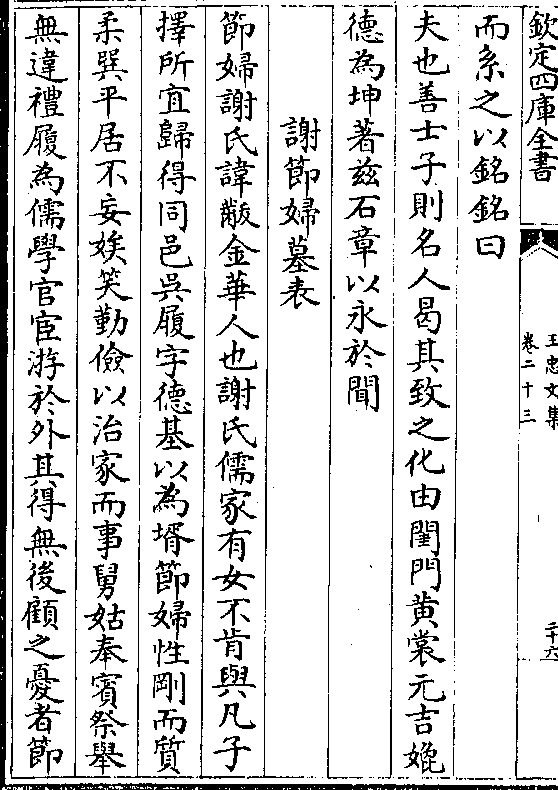 欽定四庫全書
王忠文集
卷二十三
二十六
而系之以銘銘曰
夫也善士子則名人曷其致之化由閨門黄裳元吉娩
德為坤著兹石章以永於聞
謝節婦墓表
節婦謝氏諱黻金華人也謝氏儒家有女不肯與凡子
擇所宜歸得同邑吳履字德基以為壻節婦性剛而質
柔巽平居不妄娭笑勤儉以治家而事舅姑奉賓祭舉
無違禮履為儒學官宦游於外其得無後顧之憂者節